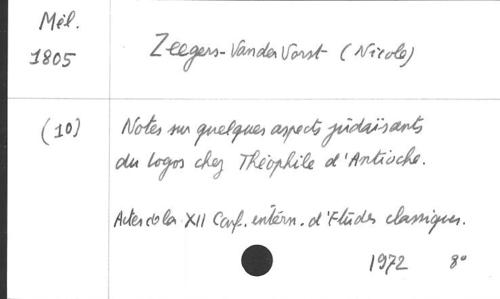 Mél.
1805
Zeegers-Vander Vorst (Nicole)
(10)
Notes sur quelques aspects judaïsants
du logos chez Théophile d'Antioche.
Actes de la XII Conf. intérn. d'Etudes classiques.
1972 8°